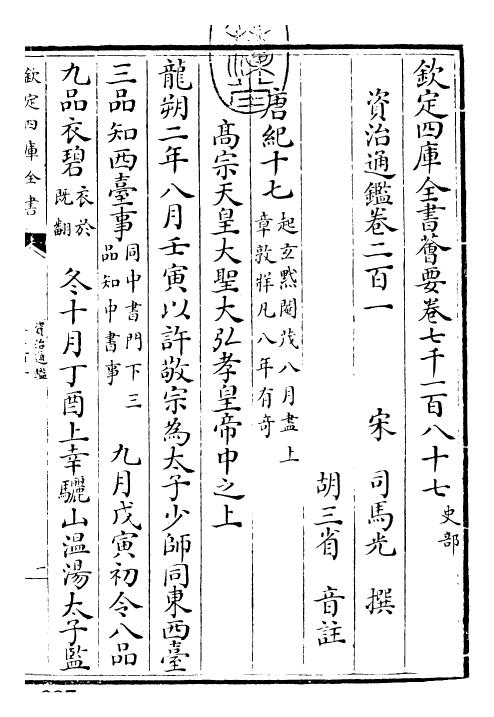 欽定四庫全書薈要卷七千一百八十七 史部
資治通鑑卷二百一
宋 司馬光 撰
胡三省 音註
唐紀十七 起玄黓閹茂八月盡上章敦牂凡八年有奇
高宗天皇大聖大弘孝皇帝中之上
龍朔二年八月壬寅以許敬宗為太子少師同東西臺
三品知西臺事 同中書門下三品知中書事 九月戊寅初令八品
九品衣碧 衣於既翻 冬十月丁酉上幸驪山溫湯太子監
欽定四庫全書
資治通鑑